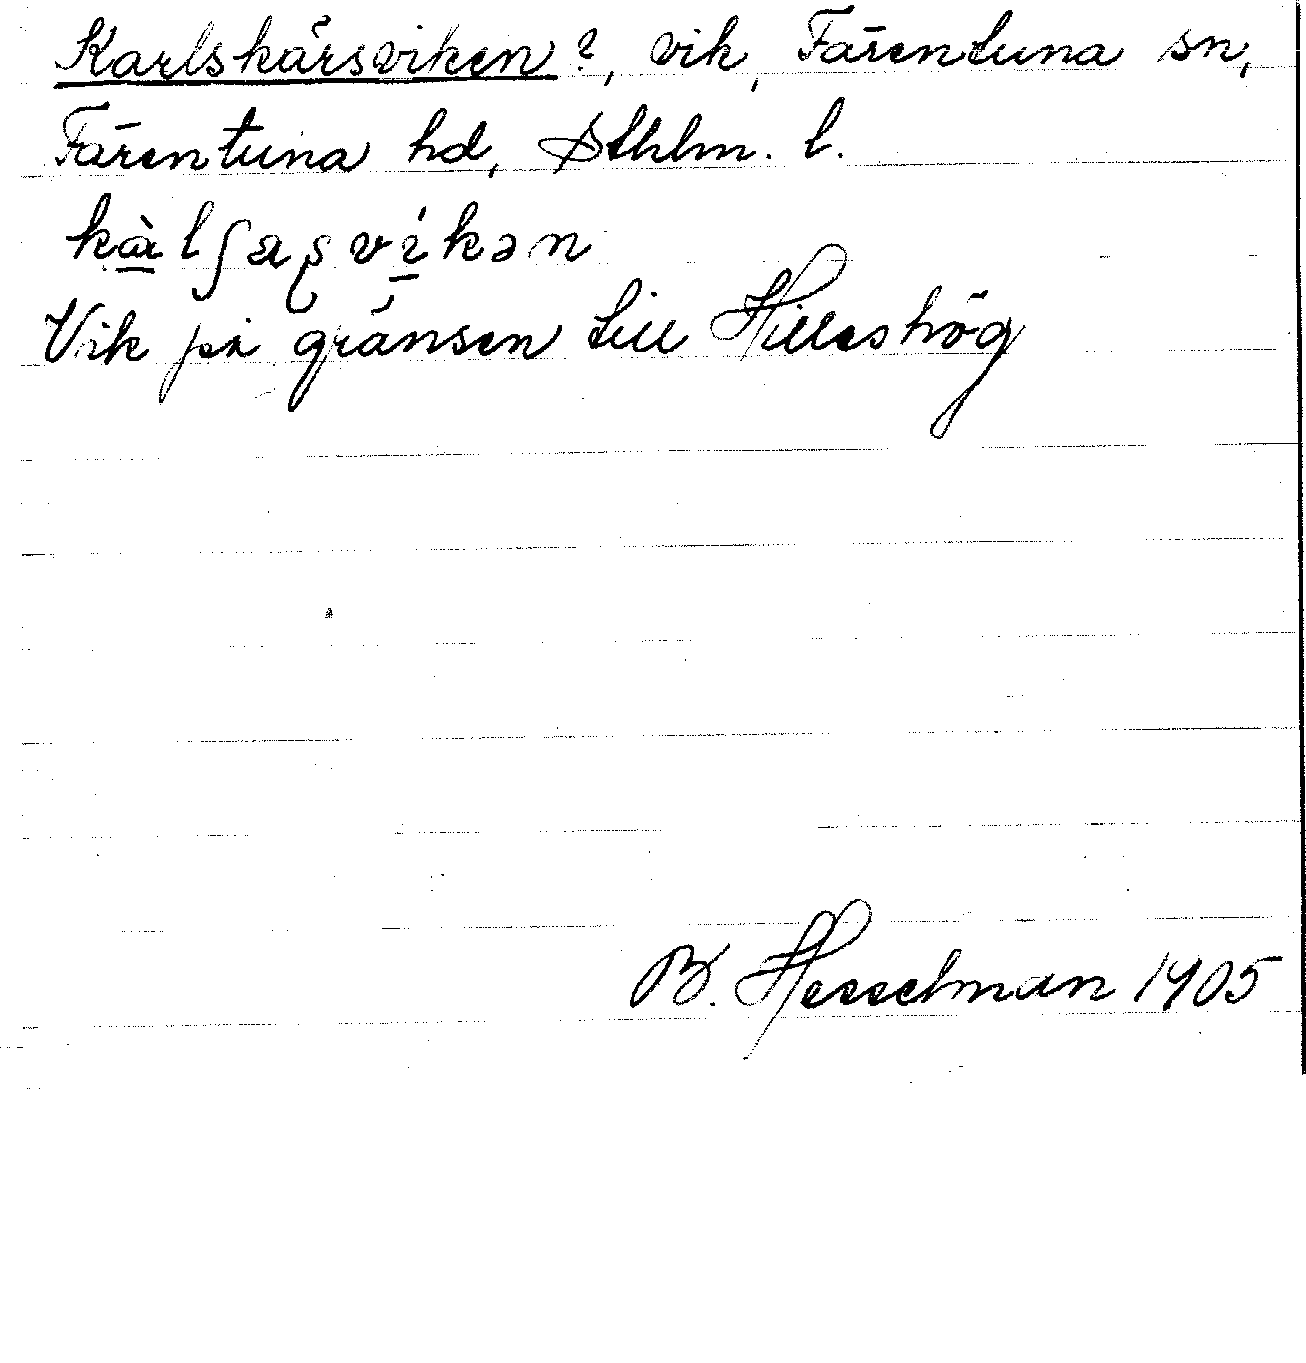 Karlskärsviken?, vik, Färentuna sn,
Färentuna hd, Sthlm. l.
kàlʃaʂvíkən
Vik på gränsen till Hilleshög
B. Hesselman 1905